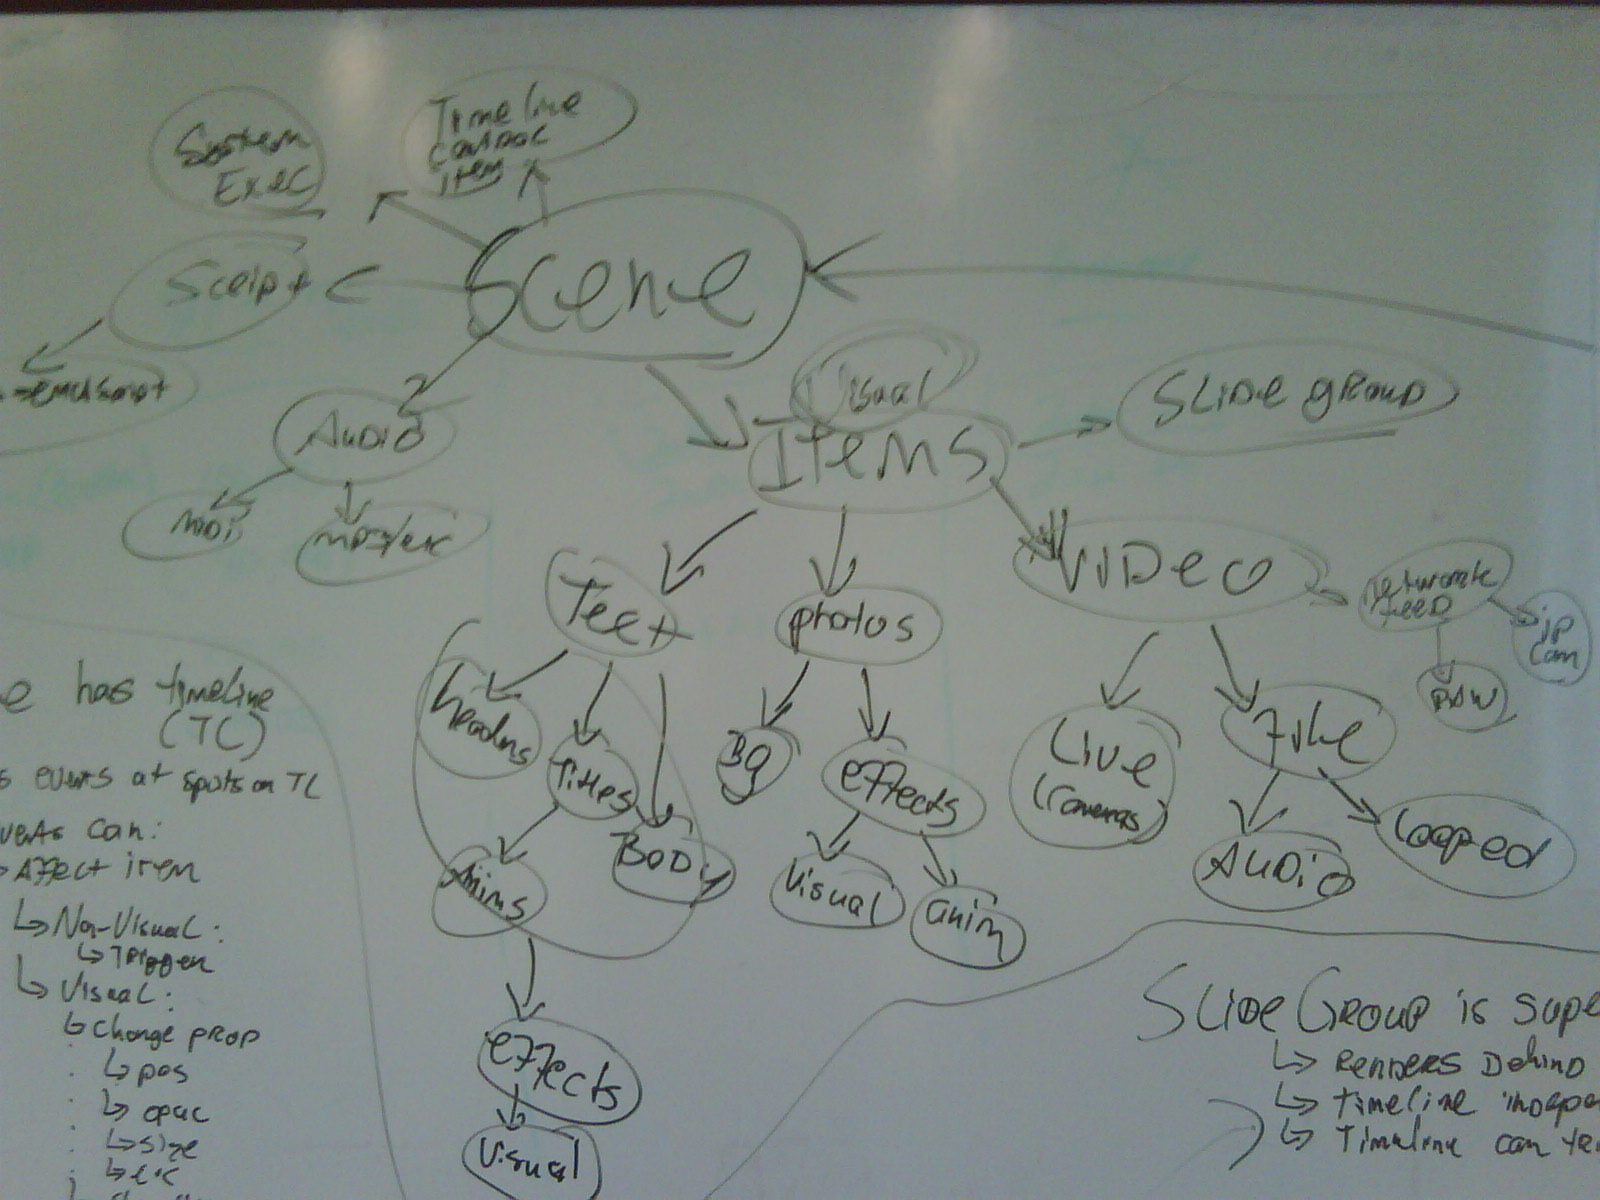 System
Exec
Timeline
Control
Item
Script
Scene
Audio
midi
mp3/etc
Visual
Items
Slide group
Text
photos
Video
Network
feed
ip
cam
RAW
headers
Titles
Body
Anims
effects
Visual
BG
effects
Visual
anim
Live
(cameras)
File
Audio
Looped
e has timeline
(TC)
s events at spots on TL
vents can:
Affect item
↳ Non-Visual:
↳ Trigger
↳ Visual:
↳ change prop
↳ pos
↳ opac
↳ size
↳ etc
Slide Group is supe
↳ Renders Behind
↳ timeline indepe
↳ Timeline can